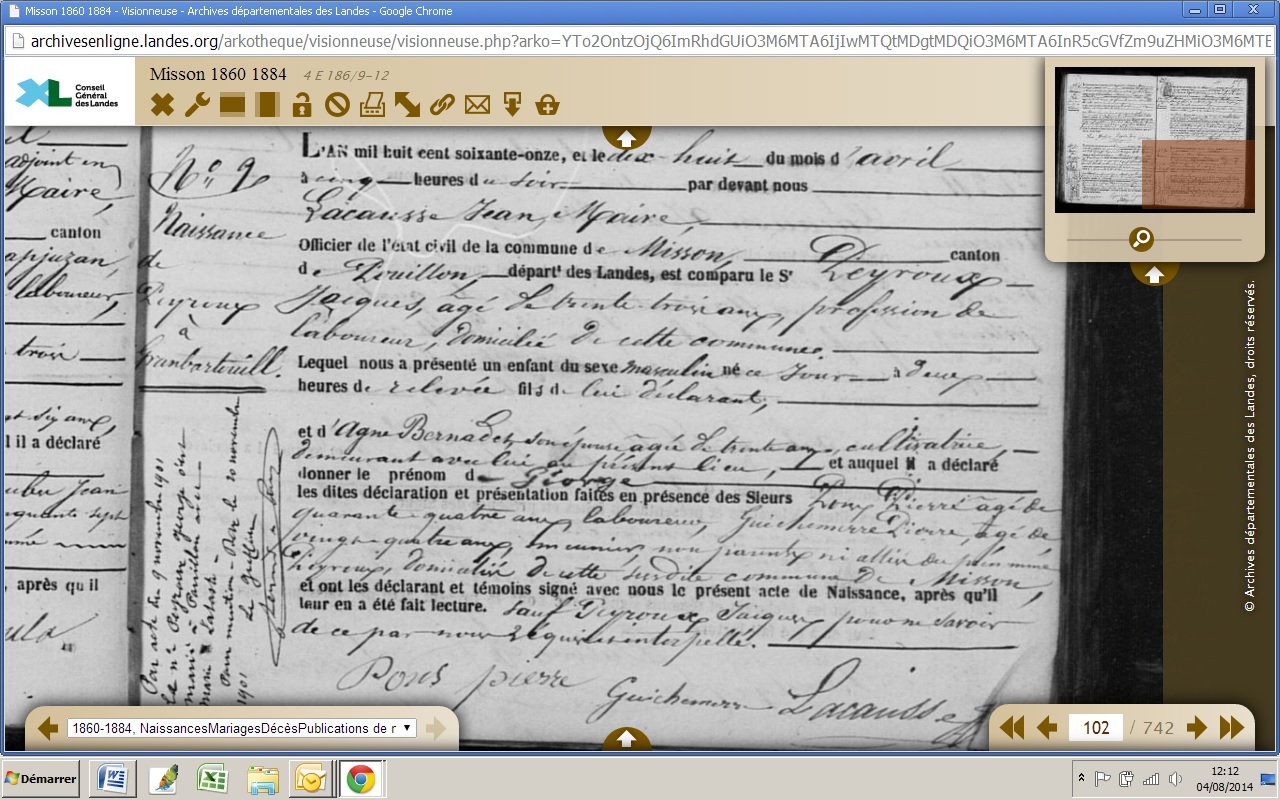 Misson 1860 1884 - Visionneuse - Archives départementales des Landes - Google Chrome
archivesenligne.landes.org/arkotheque/visionneuse/visionneuse.php?arko=
Conseil
Général
des Landes
Misson 1860 1884 4 E 186/9-12
adjoint en
Maire,
canton
laboureur,
trois
il a déclaré
Jean
, après qu'il
N° 9
Naissance
de
Peyroux
à
L'AN mil huit cent soixante-onze, et le dix-huit du mois d'avril
à cinq heures du soir par devant nous
Lacausse Jean, Maire,
Officier de l'état civil de la commune de Misson, canton
de Pouillon, départt des Landes, est comparu le Sr Peyroux
Jacques, âgé de trente trois ans, profession de
laboureur, domicilié de cette commune.
Lequel nous a présenté un enfant du sexe masculin né ce jour à deux
heures de relevée fils de lui déclarant,
et d'Agne Bernadet, son épouse âgée de trente ans, cultivatrice,
demeurant avec lui au présent lieu, et auquel il a déclaré
donner le prénom de George
les dites déclaration et présentation faites en présence des Sieurs Pons Pierre âgé de
quarante quatre ans laboureur, Guichemerre Pierre, âgé de
vingt quatre ans, non parents ni alliés du
Peyroux, domiciliés de cette susdite commune de Misson,
et ont les déclarant et témoins signé avec nous le présent acte de Naissance, après qu'il
leur en a été fait lecture. Sauf Peyroux Jacques pour ne savoir
de ce par nous requis et interpellé.
Pons pierre
Guichemerre Lacausse
Par acte du 9 novembre 1901
le né Peyroux george s'est
marié à Pouillon avec
marie
Pour mention - Dax le 20 novembre
1901 Le Greffier
© Archives départementales des Landes, droits réservés.
1860-1884, NaissancesMariagesDécèsPublications de r
102 / 742
Démarrer
12:12
04/08/2014